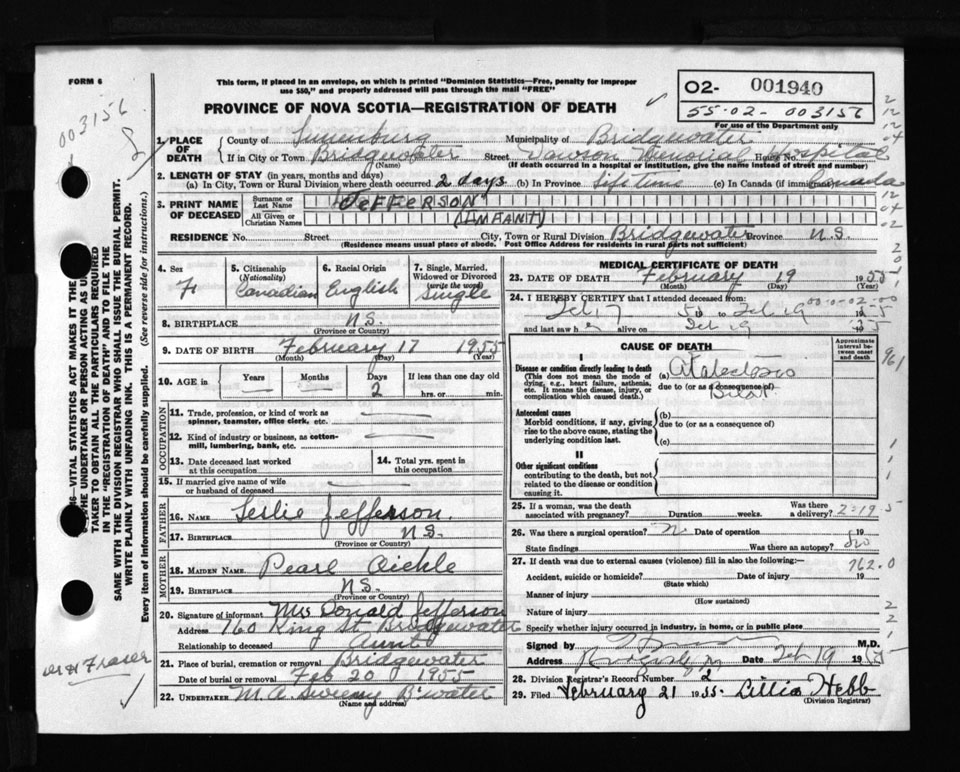 FORM 6
This form, if placed in an envelope, on which is printed "Dominion Statistics—Free, penalty for improper
use $50," and properly addressed will pass through the mail "FREE"
PROVINCE OF NOVA SCOTIA—REGISTRATION OF DEATH
O2- 001940
55-02-003156
For use of the Department only
003156
1. PLACE OF DEATH
County of Lunenburg Municipality of Bridgewater
If in City or Town Bridgewater Street Dawson Memorial House No. Hospital
(Name) (If death occurred in a hospital or institution, give the name instead of street and number)
2. LENGTH OF STAY (in years, months and days)
(a) In City, Town or Rural Division where death occurred 2 days (b) In Province Life time (c) In Canada (if immigrant) Canada
3. PRINT NAME OF DECEASED
Surname or Last Name JEFFERSON
All Given or Christian Names (INFANT)
RESIDENCE No. Street City, Town or Rural Division Bridgewater Province N.S.
(Residence means usual place of abode. Post Office Address for residents in rural parts not sufficient)
4. Sex F
5. Citizenship (Nationality) Canadian
6. Racial Origin English
7. Single, Married, Widowed or Divorced (write the word) Single
8. BIRTHPLACE N.S.
(Province or Country)
9. DATE OF BIRTH February 17 1955
(Month) (Day) (Year)
10. AGE IN Years — Months — Days 2 If less than one day old hrs. or min.
OCCUPATION
11. Trade, profession, or kind of work as spinner, teamster, office clerk, etc.
12. Kind of industry or business, as cotton-mill, lumbering, bank, etc.
13. Date deceased last worked at this occupation
14. Total yrs. spent in this occupation
15. If married give name of wife or husband of deceased
FATHER
16. NAME Leslie Jefferson.
17. BIRTHPLACE N.S.
(Province or Country)
MOTHER
18. MAIDEN NAME Pearl
19. BIRTHPLACE N.S.
(Province or Country)
20. Signature of informant Mrs Donald Jefferson
Address 760 King St Bridgewater
Relationship to deceased Aunt
21. Place of burial, cremation or removal Bridgewater
Date of burial or removal Feb 20 1955
22. UNDERTAKER M.A. Sweeny B'water
(Name and address)
MEDICAL CERTIFICATE OF DEATH
23. DATE OF DEATH February 19 1955
(Month) (Day) (Year)
24. I HEREBY CERTIFY that I attended deceased from
Feb 17 55 to Feb 19 1955
and last saw h er alive on Feb 19 1955
CAUSE OF DEATH
Approximate interval between onset and death
I
Disease or condition directly leading to death
(This does not mean the mode of dying, e.g., heart failure, asthenia, etc. It means the disease, injury, or complication which caused death.)
(a) Atelectasis
due to (or as a consequence of)
Bilat
Antecedent causes
Morbid conditions, if any, giving rise to the above cause, stating the underlying condition last.
(b)
due to (or as a consequence of)
(c)
II
Other significant conditions
contributing to the death, but not related to the disease or condition causing it.
25. If a woman, was the death associated with pregnancy? Duration weeks. Was there a delivery?
26. Was there a surgical operation? N Date of operation 19
State findings Was there an autopsy? No
27. If death was due to external causes (violence) fill in also the following:— 762.0
Accident, suicide or homicide? Date of injury 19
(State which)
Manner of injury
(How sustained)
Nature of injury
Specify whether injury occurred in industry, in home, or in public place
Signed by M.D.
Address Date Feb 19 1955
28. Division Registrar's Record Number 2
29. Filed February 21 1955- Lillia Hebb
(Division Registrar)
VITAL STATISTICS MAKES IT THE
THE UNDERTAKER OR PERSON ACTING AS
TAKER TO OBTAIN ALL THE PARTICULARS REQUIRED
IN THE "REGISTRATION OF DEATH" AND TO FILE THE
SAME WITH THE DIVISION REGISTRAR WHO SHALL ISSUE THE BURIAL PERMIT.
WRITE PLAINLY WITH UNFADING INK. THIS IS A PERMANENT RECORD.
Every item of information should be carefully supplied. (See reverse side for instructions.)
Fraser